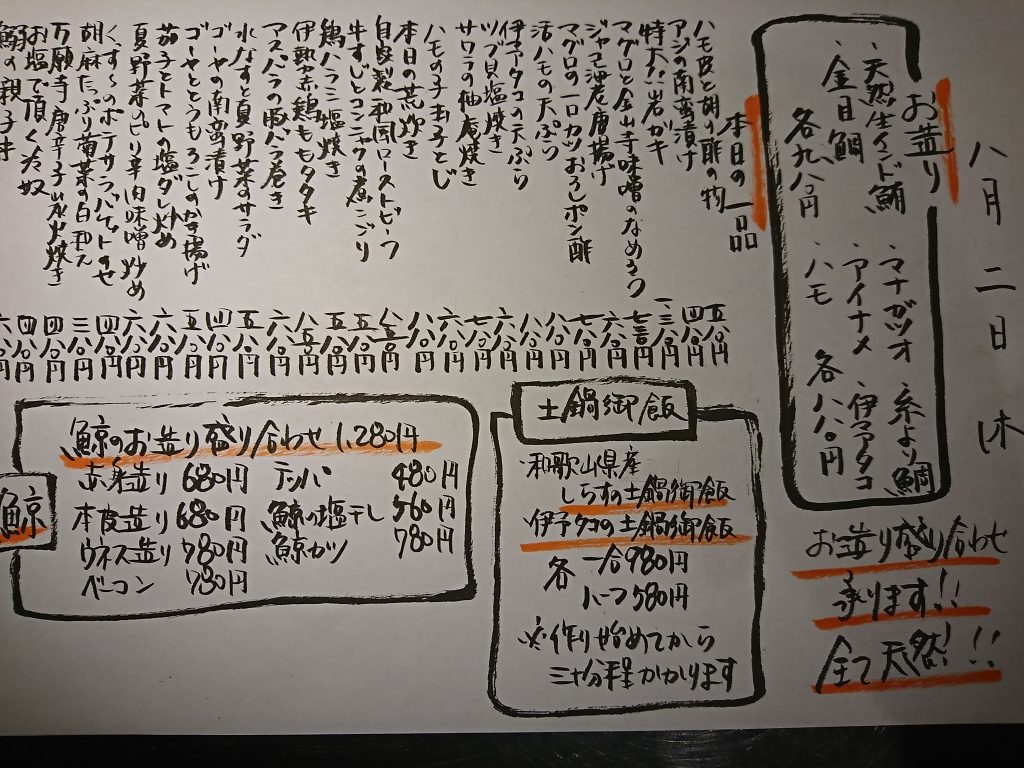 八月二日 木
お造り
・天然生インド鮪
・金目鯛
各九八〇円
・マナガツオ ・糸より鯛
・アイナメ ・伊予タコ
・ハモ 各八八〇円
お造り盛り合わせ
承ります!!
全て天然!!!
本日の一品
ハモ皮と胡瓜の酢の物 五八〇円
アジの南蛮漬け 四八〇円
特大!!岩ガキ
マグロと金山寺味噌のなめろう 七三〇円
ジャコ沢唐揚げ
マグロの一口カツおろしポン酢
活ハモの天ぷら 八八〇円
伊予タコの天ぷら
ツブ貝塩焼き 七八〇円
サワラの柚庵焼き 六八〇円
ハモの子玉子とじ 六八〇円
本日の荒炊き 八〇円
自家製和風ローストビーフ
牛すじとコンニャクの煮こごり 五八〇円
鶏ハラミ塩焼き 五八〇円
伊勢赤鶏ももタタキ
アスパラの豚バラ巻き 六八〇円
水なすと夏野菜のサラダ 五八〇円
ゴーヤの南蛮漬け 四八〇円
ゴーヤととうもろこしのかき揚げ 五八〇円
茄子とトマトの塩ダレ炒め 六八〇円
夏野菜のピリ辛肉味噌炒め 六八〇円
くずし〜のポテサラ、バゲットのせ 四八〇円
胡麻たっぷり菊菜の白和え 三八〇円
万願寺唐辛子の炭火焼き 四八〇円
お塩で頂く冷奴 四八〇円
土鍋御飯
・和歌山県産
しらすの土鍋御飯
・伊予タコの土鍋御飯
各 一合980円
ハーフ580円
※作り始めてから
三十分程かかります
鯨
鯨のお造り盛り合わせ 1,280円
赤身造り 680円 テッパ 480円
本皮造り 680円 鯨の塩干し 560円
ウネス造り 780円 鯨カツ 780円
ベーコン 730円